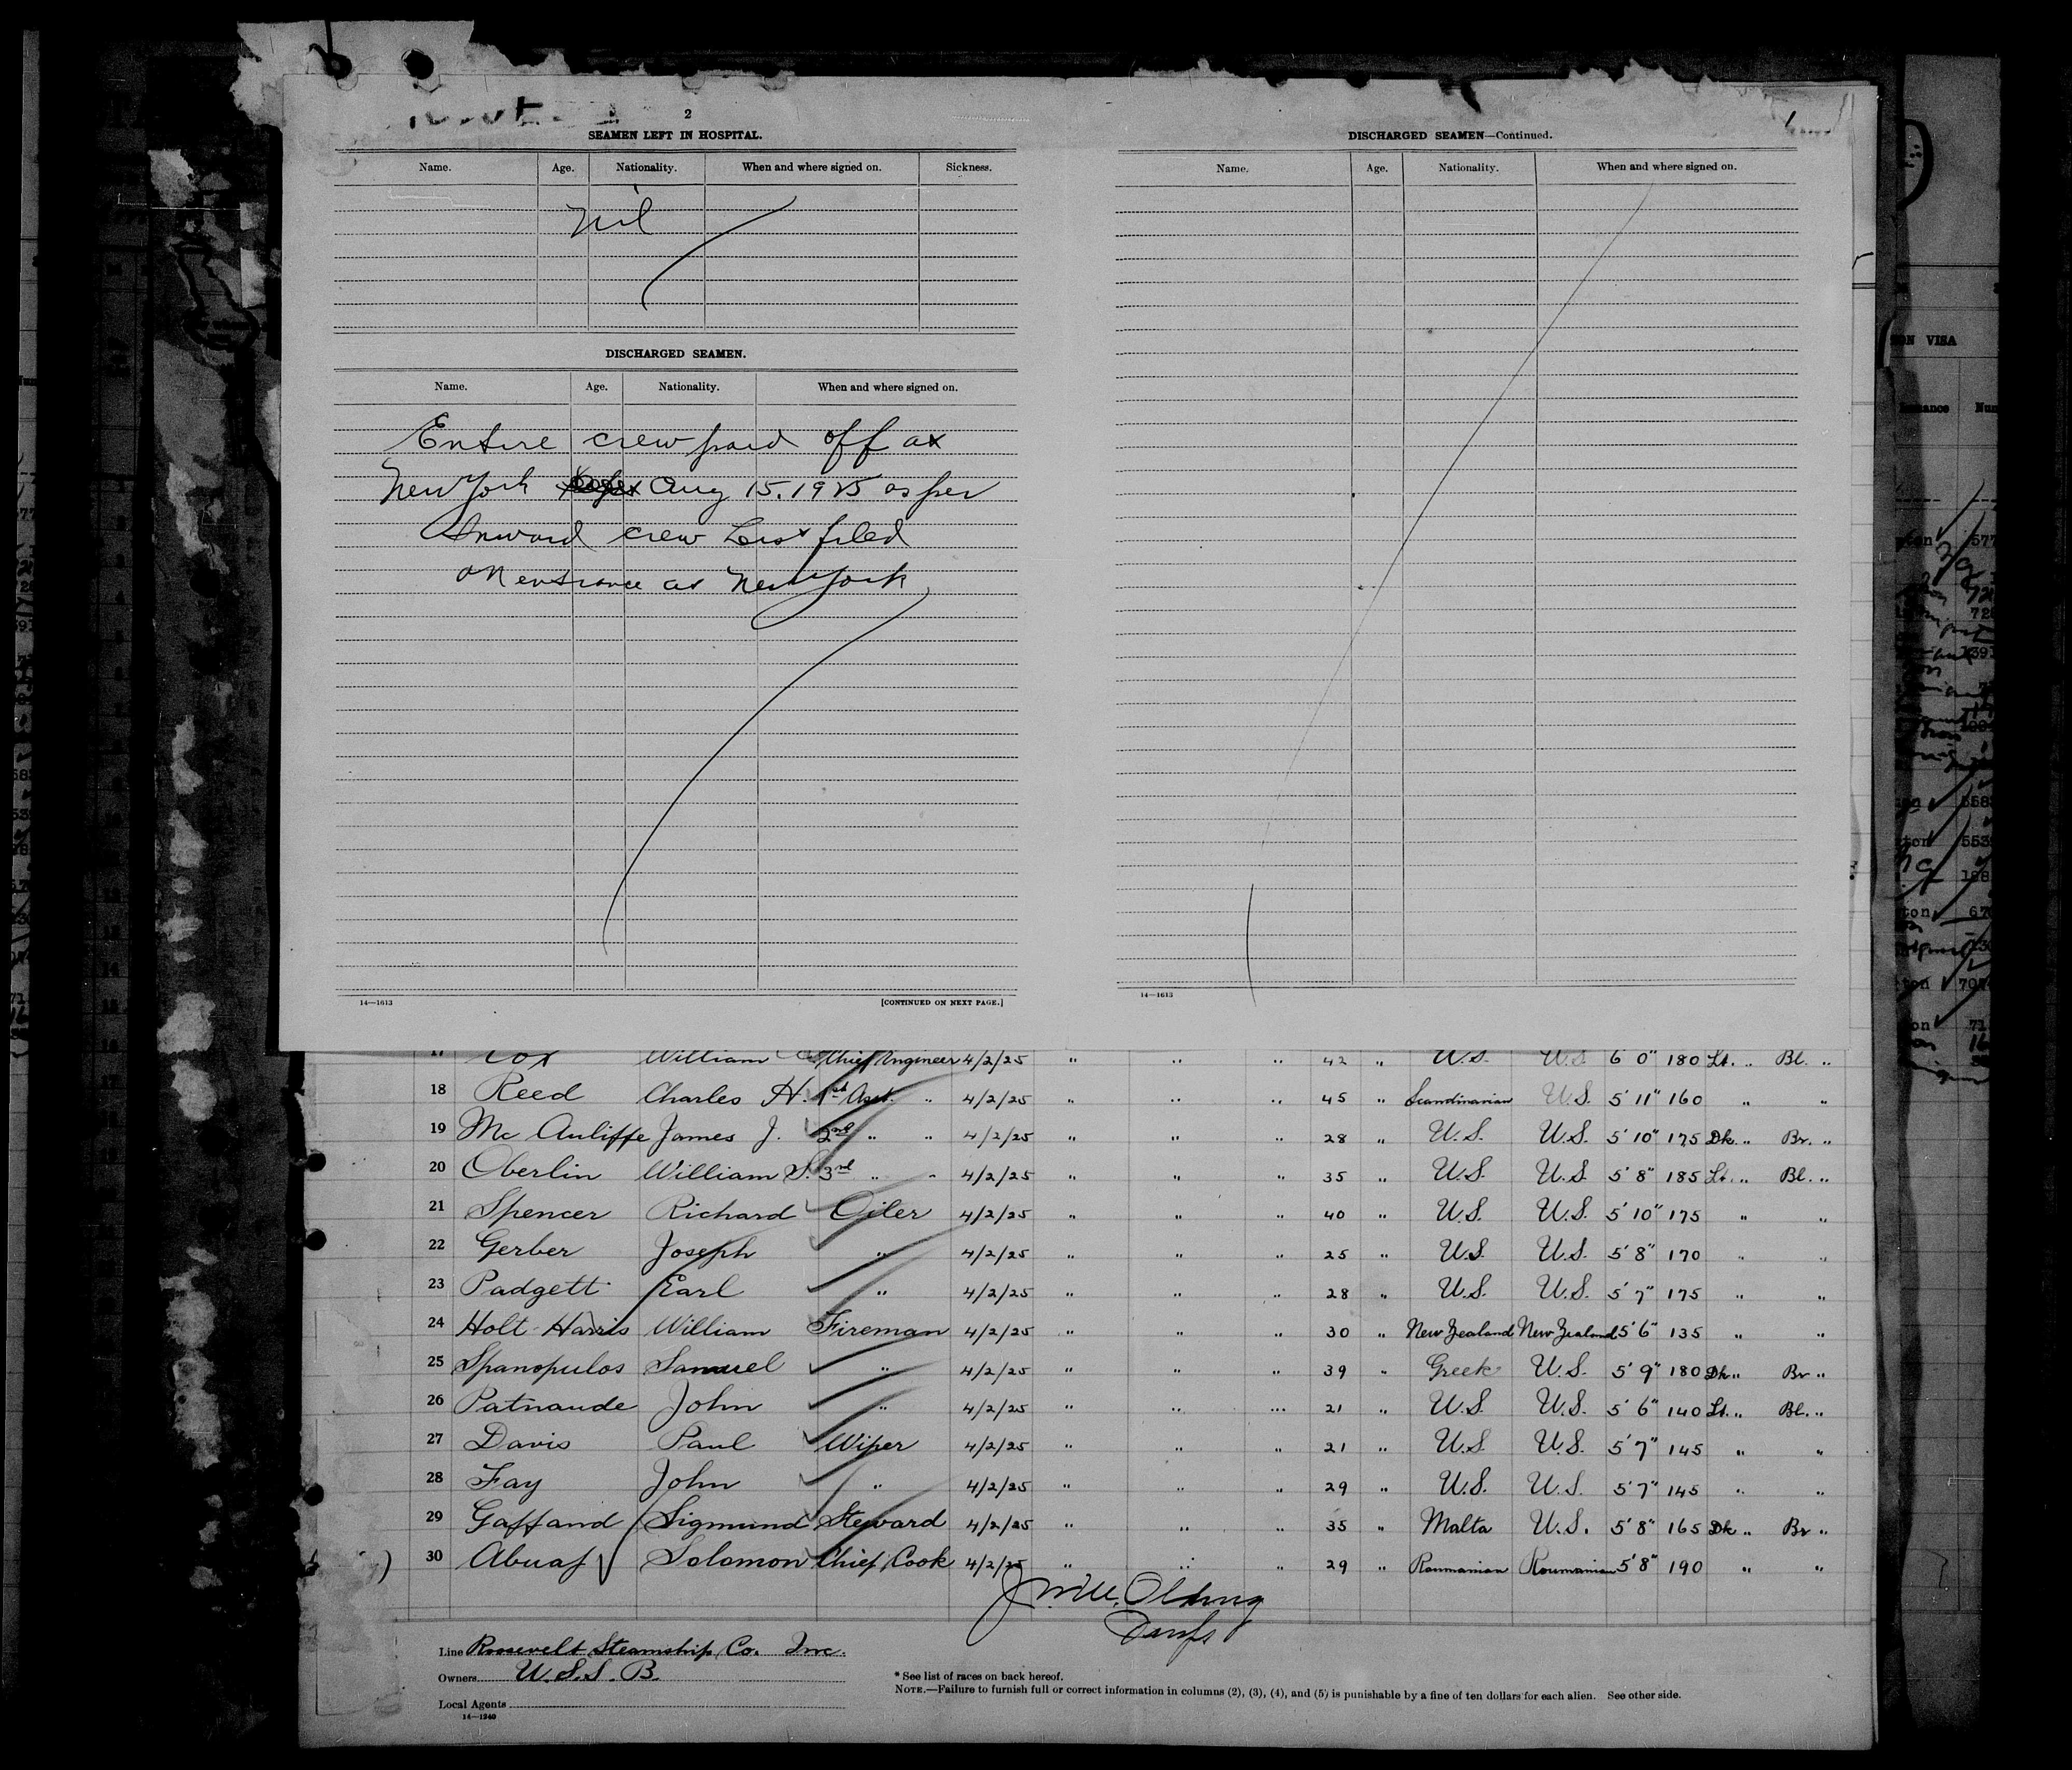 2
SEAMEN LEFT IN HOSPITAL.
Name. Age. Nationality. When and where signed on. Sickness.
Nil
DISCHARGED SEAMEN.
Name. Age. Nationality. When and where signed on.
Entire crew paid off at
New York Aug 15. 1925 as per
Inward crew List filed
on entrance at New York
14—1613 [CONTINUED ON NEXT PAGE.]
1
DISCHARGED SEAMEN—Continued.
Name. Age. Nationality. When and where signed on.
14—1613
17 Cox William Chief Engineer 4/2/25 " " " 42 " U.S. U.S. 6' 0" 180 Lt. " Bl. "
18 Reed Charles H. 1st Asst. " 4/2/25 " " " 45 " Scandinavian U.S. 5' 11" 160 " "
19 Mc Auliffe James J. 2nd " " 4/2/25 " " " 28 " U.S. U.S. 5' 10" 175 Dk. " Br. "
20 Oberlin William S. 3rd " " 4/2/25 " " " 35 " U.S. U.S. 5' 8" 185 Lt. " Bl. "
21 Spencer Richard Oiler 4/2/25 " " " 40 " U.S. U.S. 5' 10" 175 " "
22 Gerber Joseph " 4/2/25 " " " 25 " U.S. U.S. 5' 8" 170 " "
23 Padgett Earl " 4/2/25 " " " 28 " U.S. U.S. 5' 7" 175 " "
24 Holt-Harris William Fireman 4/2/25 " " " 30 " New Zealand New Zealand 5' 6" 135 " "
25 Spanopulos Samuel " 4/2/25 " " " 39 " Greek U.S. 5' 9" 180 Dk " Br "
26 Patnaude John " 4/2/25 " " " 21 " U.S. U.S. 5' 6" 140 Lt. " Bl. "
27 Davis Paul Wiper 4/2/25 " " " 21 " U.S. U.S. 5' 7" 145 " "
28 Fay John " 4/2/25 " " " 29 " U.S. U.S. 5' 7" 145 " "
29 Gaffand Sigmund Steward 4/2/25 " " " 35 " Malta U.S. 5' 8" 165 Dk " Br "
30 Abuaf Solomon Chief Cook 4/2/25 " " " 29 " Roumanian Roumanian 5' 8" 190 " "
Line Roosevelt Steamship Co. Inc.
Owners U.S.S.B.
Local Agents
14—1240
* See list of races on back hereof.
NOTE.—Failure to furnish full or correct information in columns (2), (3), (4), and (5) is punishable by a fine of ten dollars for each alien. See other side.